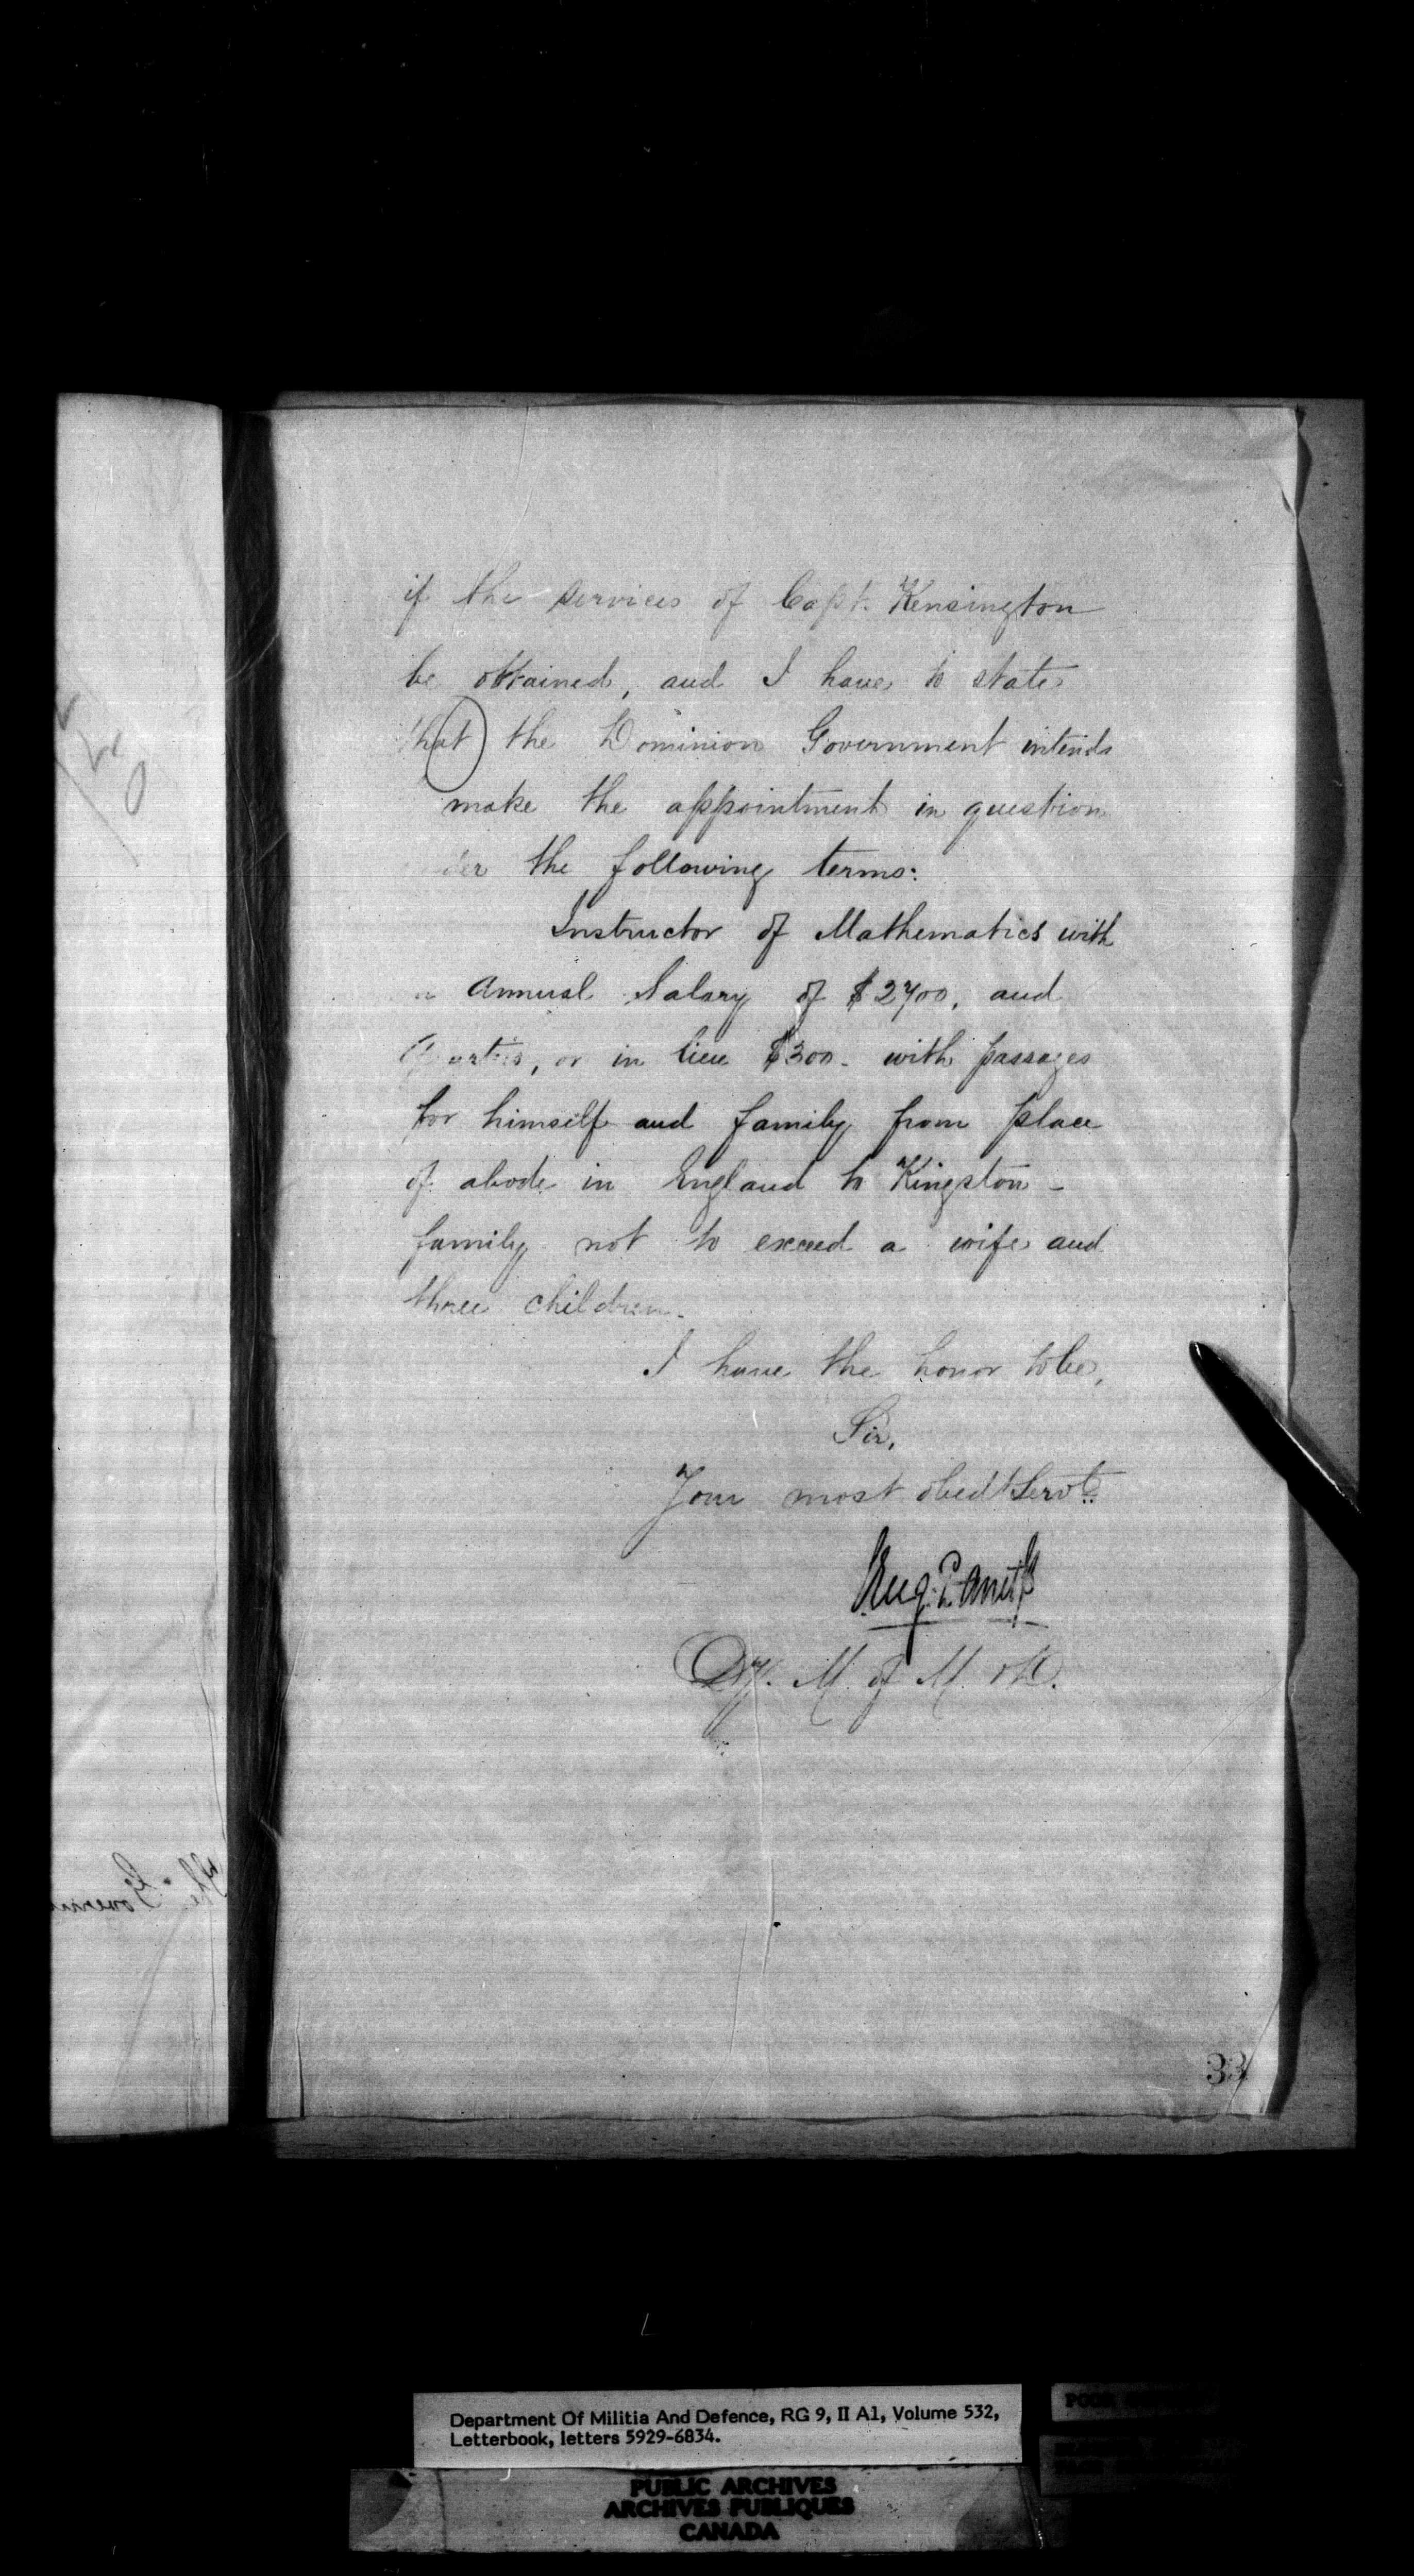 if the services of Capt. Kensington
be obtained, and I have to state
that the Dominion Government intends
make the appointment in question
der the following terms:
Instructor of Mathematics with
n Annual Salary of $2700, and
Quarters, or in lieu $300 - with passages
for himself and family from place
of abode in England to Kingston -
family not to exceed a wife and
three children -
I have the honor to be,
Sir,
Your most obedt Servt
Eug. Panet
Dy. M. of M. & D.
33
The Govern
Department Of Militia And Defence, RG 9, II A1, Volume 532,
Letterbook, letters 5929-6834.
PUBLIC ARCHIVES
ARCHIVES PUBLIQUES
CANADA